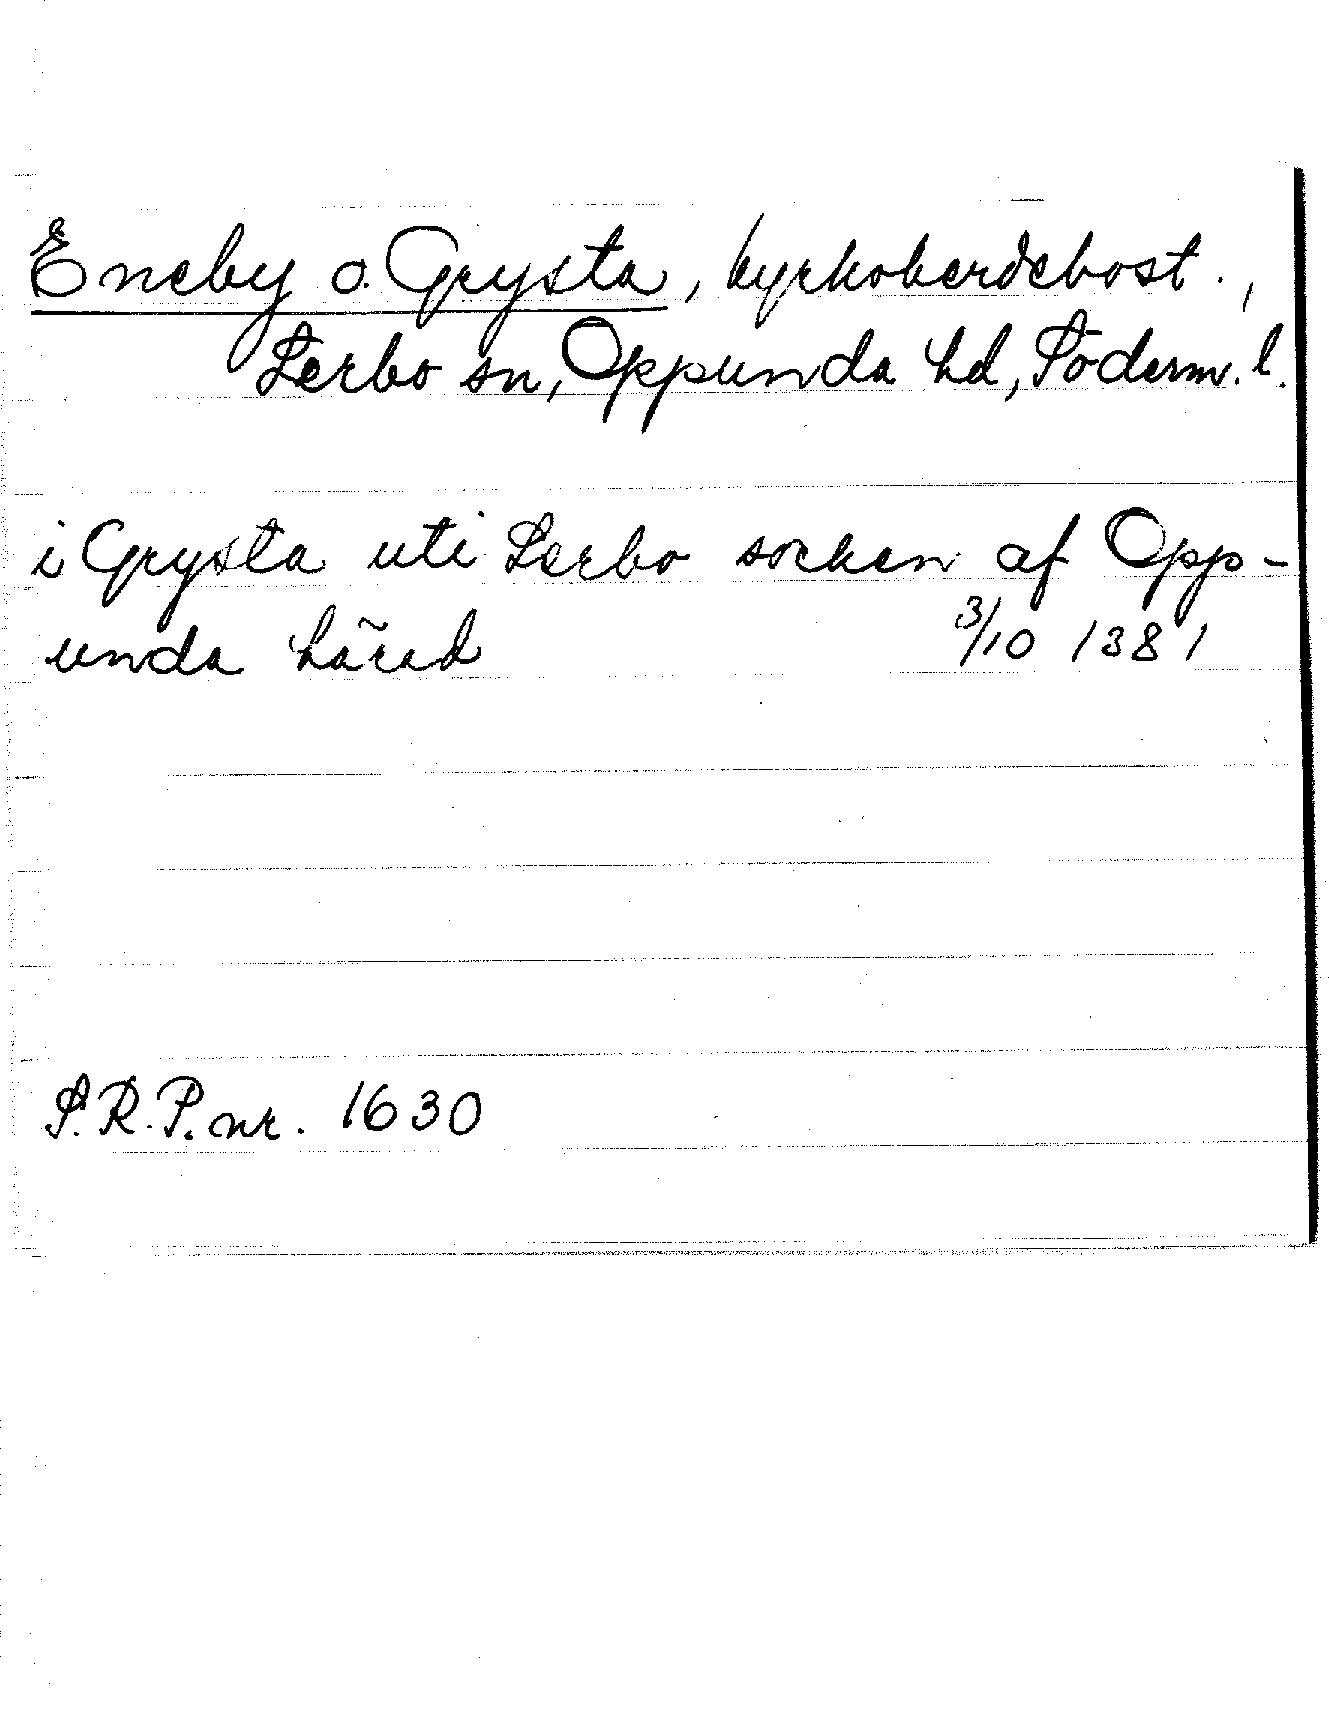 Eneby o. Grysta, kyrkoherdebost.,
Lerbo sn, Oppunda hd, Söderm. l.
i Grysta uti Lerbo socken af Opp-
unda härad 3/10 1381
S.R.P. nr. 1630